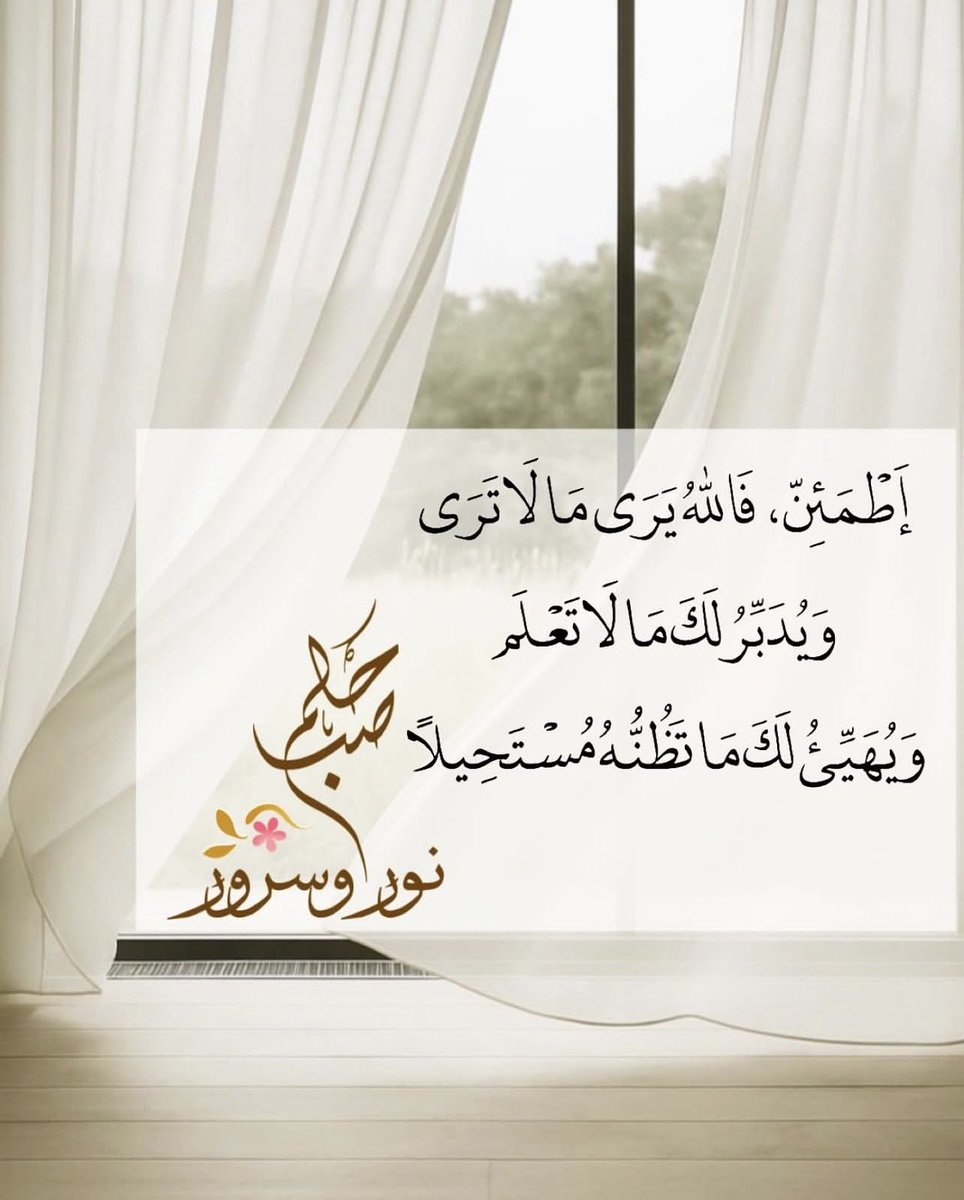 إَطْمَئِنّ، فَاللهُ يَرَى مَا لَا تَرَى
وَيُدَبِّرُ لَكَ مَا لَا تَعْلَم
وَيُهَيِّئُ لَكَ مَا تَظُنُّهُ مُسْتَحِيلاً
صباحكم
نور وسرور